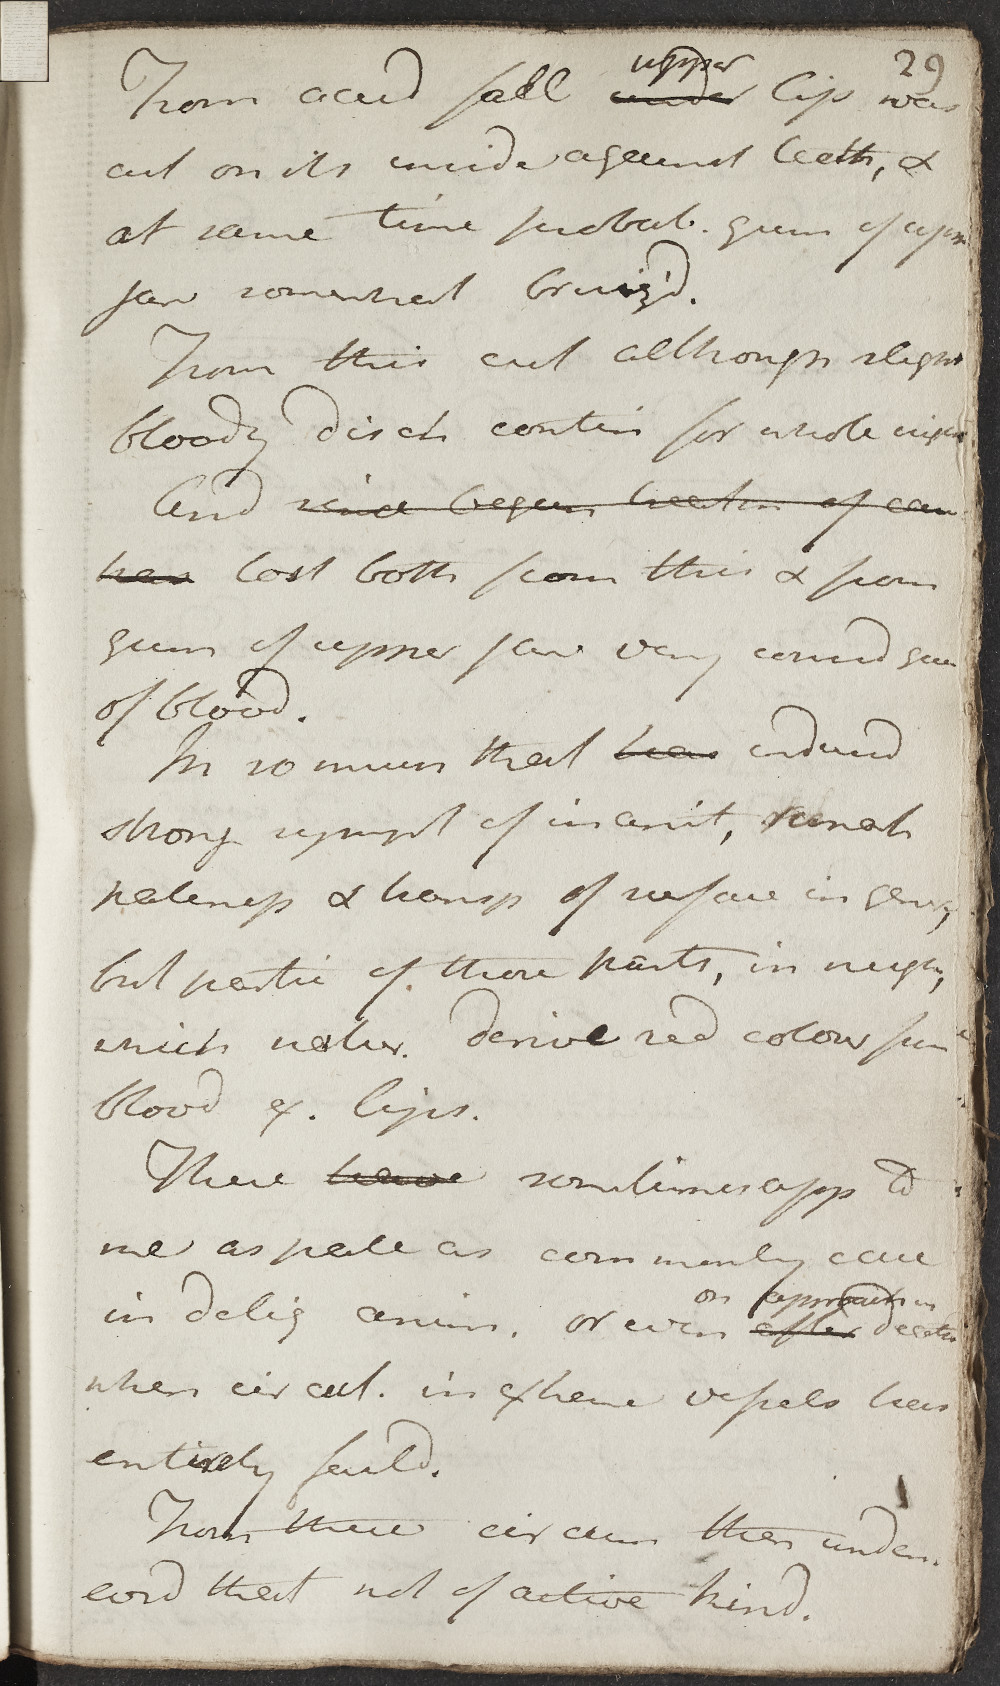 29
From accid fall upper under lip was
cut on its inside against teeth, &
at same time probab. gum of upper
jaw somewhat bruiz'd.
From this cut although slight
bloody disch contin for whole night
And since began treatm of can
has lost both from this & from
gum of upper jaw very consid quan
of blood.
In so much that has induced
strong sympt of inanit, remark
paleness & transp of surface in gener,
but partic of those parts, in neigh,
which natur. derive red colour from
blood ex. lips.
These have sometimes app to
me as pale as commonly case
in deliq anim. or even on approach in after death
when circul. in extreme vessels has
entirely fail'd.
From these circum then under.
cord that not of active kind.